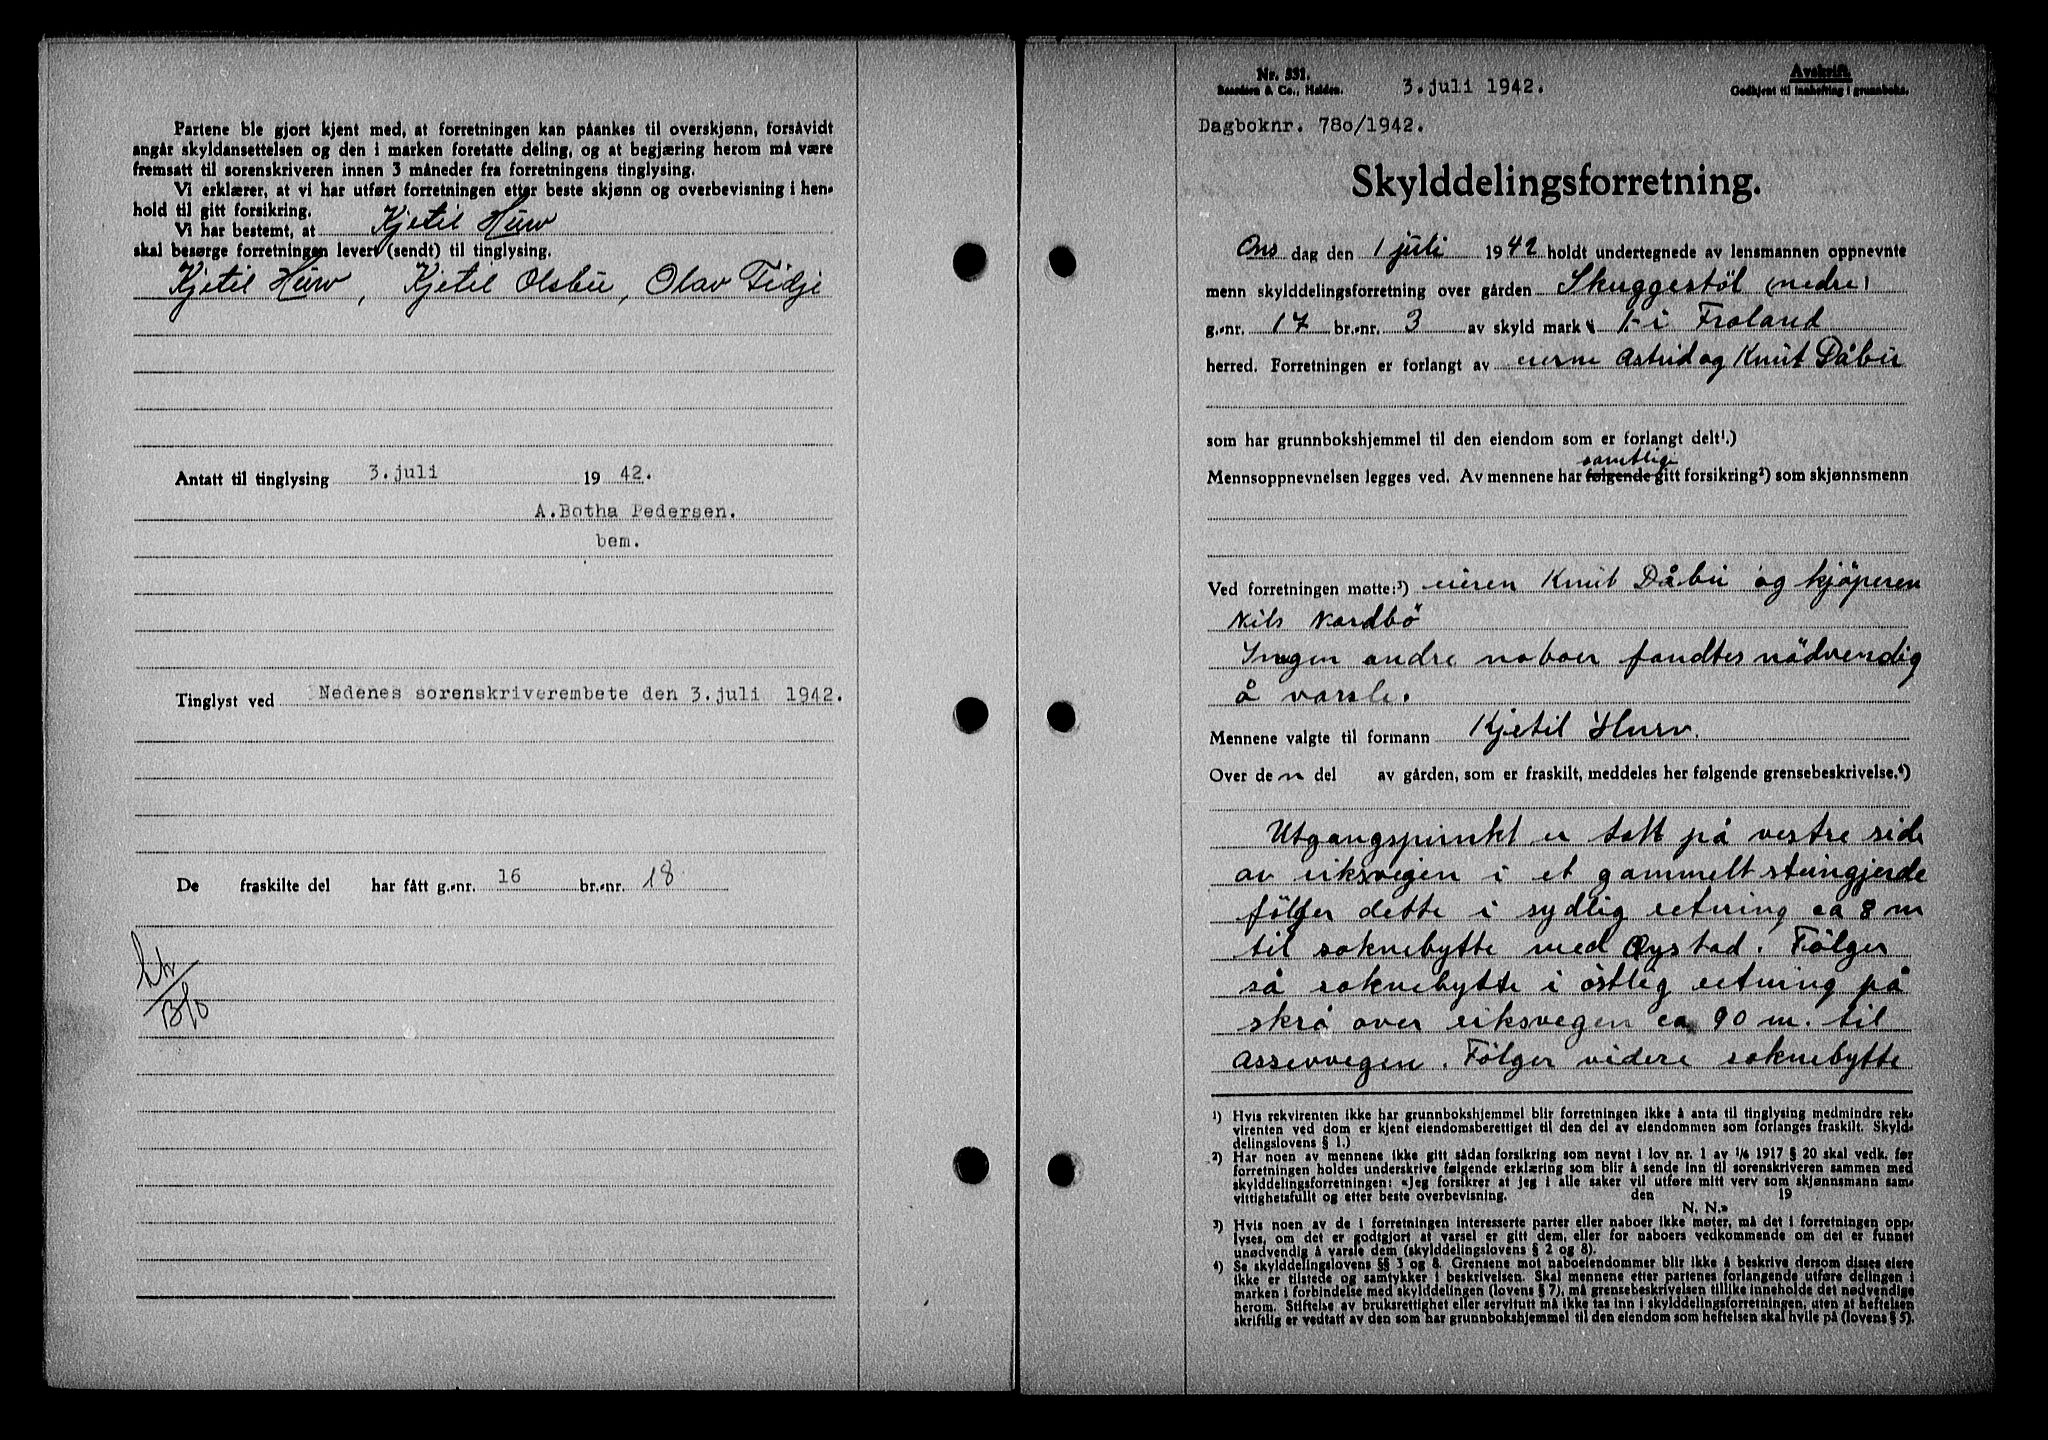 Partene ble gjort kjent med, at forretningen kan påankes til overskjønn, forsåvidt
angår skyldansettelsen og den i marken foretatte deling, og at begjæring herom må være
fremsatt til sorenskriveren innen 3 måneder fra forretningens tinglysing.
Vi erklærer, at vi har utført forretningen etter beste skjønn og overbevisning i hen-
hold til gitt forsikring.
Vi har bestemt, at Kjetil Hurv
skal besørge forretningen levert (sendt) til tinglysing.
Kjetil Hurv, Kjetil Olsbu, Olav Tidje
Antatt til tinglysing 3. juli 1942.
A. Botha Pedersen.
bem.
Tinglyst ved Nedenes sorenskriverembete den 3. juli 1942.
De fraskilte del har fått g.-nr. 16 br.-nr. 18
Nr. 531.
3. juli 1942.
Avskrift.
Godkjent til innhefting i grunnboks.
Dagboknr. 780/1942.
Skylddelingsforretning.
Ons dag den 1 juli 1942 holdt undertegnede av lensmannen oppnevnte
menn skylddelingsforretning over gården Skuggestöl (nedre)
g.-nr. 17 br.-nr. 3 av skyld mark 1- i Froland
herred. Forretningen er forlangt av eierne Astrid og Knut Dåbu
som har grunnbokshjemmel til den eiendom som er forlangt delt¹.)
samtlige
Mennsoppnevnelsen legges ved. Av mennene har følgende gitt forsikring²) som skjønnsmenn
Ved forretningen møtte:³) eieren Knut Dåbu og kjöperen
Nils Nordbö
Ingen andre naboer fandtes nödvendig
å varsle.
Mennene valgte til formann Kjetil Hurv.
Over den del av gården, som er fraskilt, meddeles her følgende grensebeskrivelse.⁴)
Utgangspunkt er tatt på vestre side
av riksvegen i et gammelt steingjerde
fölger dette i sydlig retning ca 8 m
til soknebytte med Øystad. Fölger
så soknebytte i östlig retning på
skrå over riksvegen ca 90 m. til
assevvegen. Fölger videre soknebytte
¹) Hvis rekvirenten ikke har grunnbokshjemmel blir forretningen ikke å anta til tinglysing medmindre rek-
virenten ved dom er kjent eiendomsberettiget til den del av eiendommen som forlanges fraskilt. Skyld-
delingslovens § 1.)
²) Har noen av mennene ikke gitt sådan forsikring som nevnt i lov nr. 1 av 1/6 1917 § 20 skal vedk. før
forretningen holdes underskrive følgende erklæring som blir å sende inn til sorenskriveren sammen med
skylddelingsforretningen: «Jeg forsikrer at jeg i alle saker vil utføre mitt verv som skjønnsmann sam-
vittighetsfullt og etter beste overbevisning. den 19
N. N.»
³) Hvis noen av de i forretningen interesserte parter eller naboer ikke møter, må det i forretningen opp-
lyses, om det er godtgjort at varsel er gitt dem, eller for naboers vedkommende om det er funnet
unødvendig å varsle dem (skylddelingslovens § 2 og 8).
⁴) Se skylddelingslovens §§ 3 og 8. Grensene mot naboeiendommer blir ikke å beskrive dersom disses eiere
ikke er tilstede og samtykker i beskrivelsen. Skal mennene etter partenes forlangende utføre delingen i
marken i forbindelse med skylddelingen (lovens § 7), må grensebeskrivelsen tillike inneholde det nødvendige
herom. Stiftelse av bruksrettighet eller servitutt må ikke tas inn i skylddelingsforretningen, uten at heftelsen
skriftlig er vedtatt av den som har grunnbokshjemmel til den eiendom som heftelsen skal hvile på (lovens § 5).